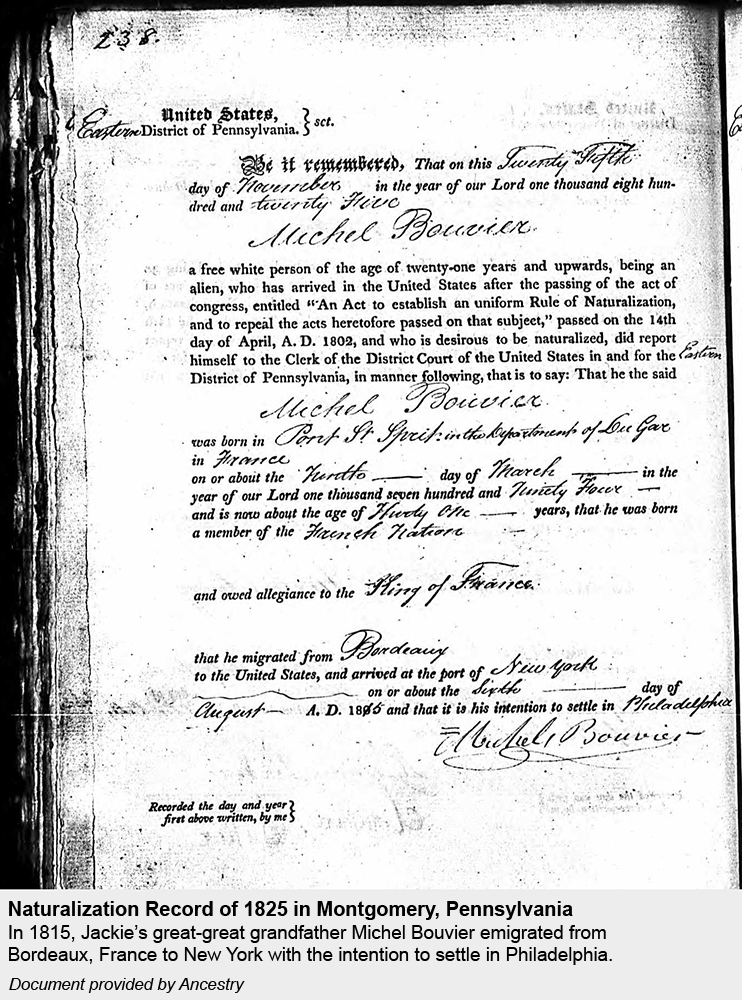 238.
United States,
Eastern District of Pennsylvania. } sct.
Be it remembered, That on this Twenty Fifth
day of November in the year of our Lord one thousand eight hun-
dred and twenty Five
Michel Bouvier.
a free white person of the age of twenty-one years and upwards, being an
alien, who has arrived in the United States after the passing of the act of
congress, entitled "An Act to establish an uniform Rule of Naturalization,
and to repeal the acts heretofore passed on that subject," passed on the 14th
day of April, A. D. 1802, and who is desirous to be naturalized, did report
himself to the Clerk of the District Court of the United States in and for the Eastern
District of Pennsylvania, in manner following, that is to say: That he the said
Michel Bouvier.
was born in Pont St Sprit: in the Department of Du Gar
in France
on or about the day of March in the
year of our Lord one thousand seven hundred and Ninety Four
and is now about the age of One years, that he was born
a member of the French Nation
and owed allegiance to the King of France.
that he migrated from Bordeaux
to the United States, and arrived at the port of New York
on or about the Sixth day of
August A. D. 1815 and that it is his intention to settle in Philadelphia
Michel Bouvier
Recorded the day and year }
first above written, by me }
Naturalization Record of 1825 in Montgomery, Pennsylvania
In 1815, Jackie's great-great grandfather Michel Bouvier emigrated from
Bordeaux, France to New York with the intention to settle in Philadelphia.
Document provided by Ancestry